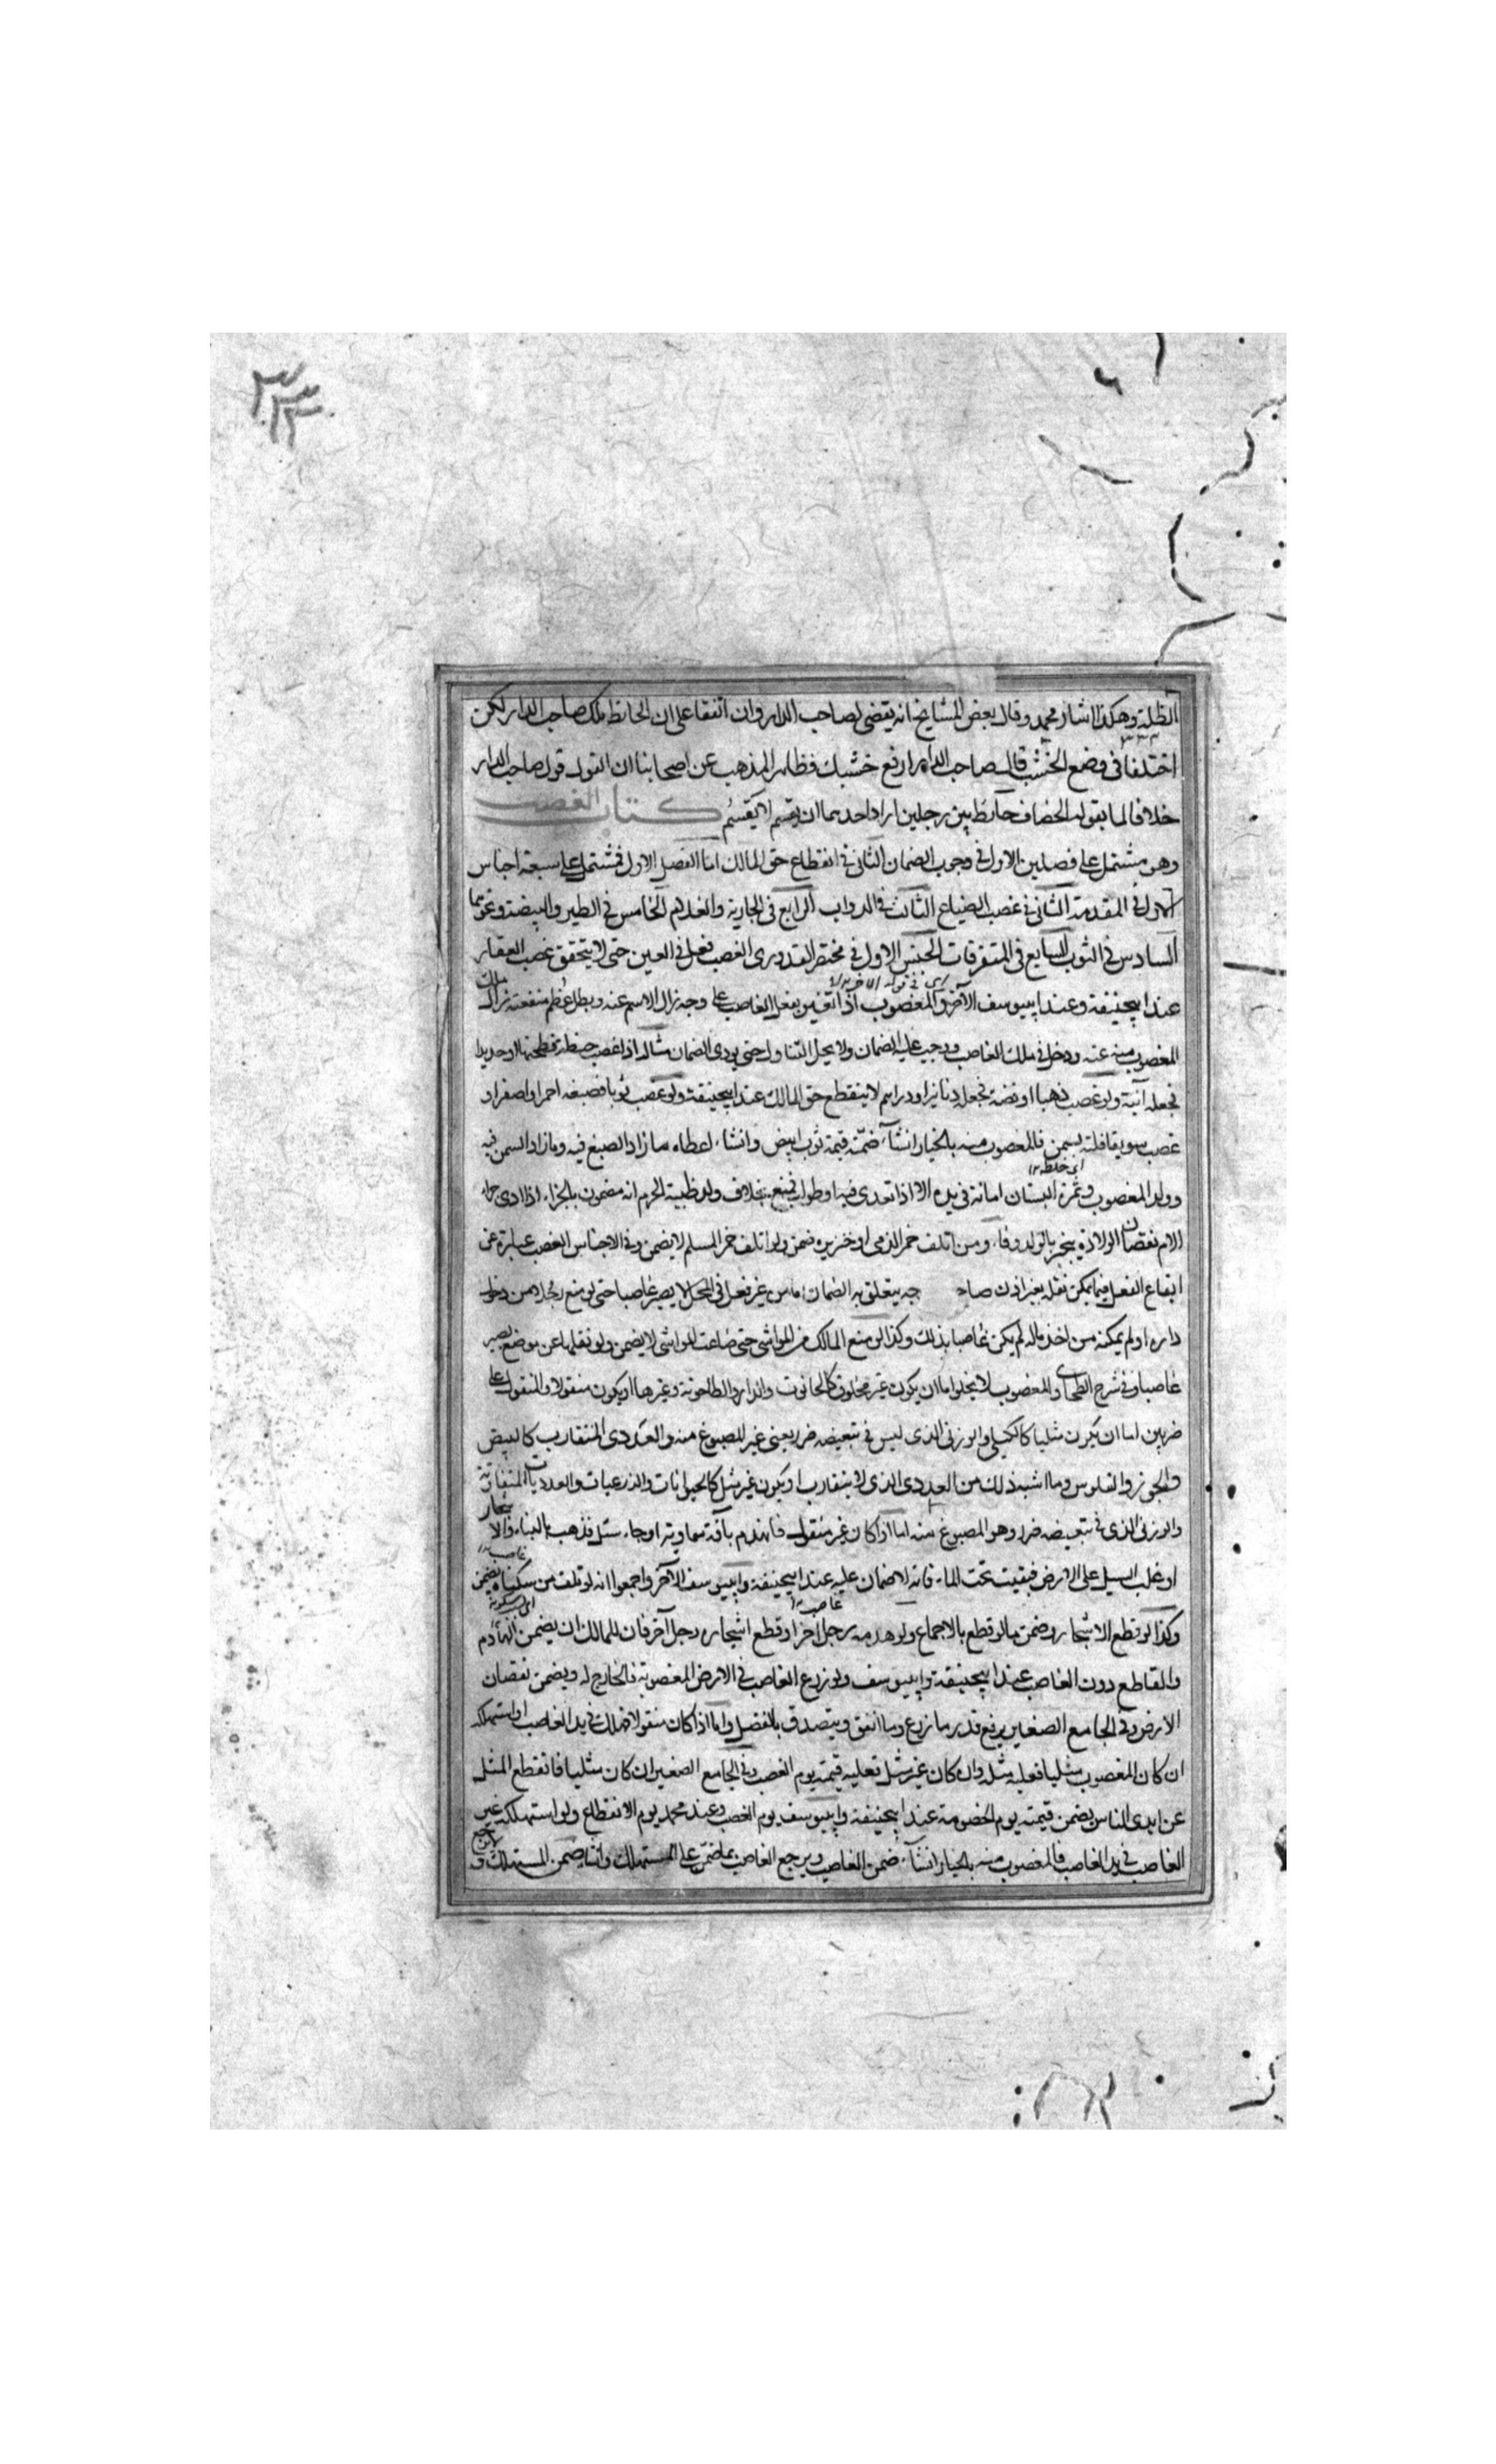 ٣٣٣
الظلة وهكذا اشار محمد وقال بعض المشايخ انه يقضى لصاحب الدار وان اتفقا على ان الحائط ملك صاحب الدار لكن
اختلفا فى وضع الخشب قال صاحب الدار ارفع خشبك فظاهر المذهب عن اصحابنا ان القول قول صاحب الدار
خلافا لما يقوله الخصاف حائط بين رجلين اراد احدهما ان يقسم لا يقسم كتاب الغصب
وهو مشتمل على فصلين الاول فى وجوب الضمان الثانى فى انقطاع حق المالك اما الفصل الاول فمشتمل على سبعة اجناس
الاول فى المقدمة الثانى فى غصب الضياع الثالث فى الدواب الرابع فى الجارية والغلام الخامس فى الطير والبيضة ونحوها
السادس فى الثوب السابع فى المتفرقات الجنس الاول فى مختصر القدورى الغصب فعل فى العين حتى لا يتحقق غصب العقار
عند ابيحنيفة وعند ابيوسف الآخر والمغصوب اذا تغير بفعل الغاصب على وجه زال الاسم عنه وبطل عظم منفعته زال ملك
المغصوب منه عنه ودخل فى ملك الغاصب ووجب عليه الضمان ولا يحل التناول حتى يودى الضمان مثاله اذا غصب حنطة فطحنها او حديدا
فجعله آنية ولو غصب ذهبا او فضة فجعله دنانير او دراهم لا ينقطع حق المالك عند ابيحنيفة ولو غصب ثوبا فصبغه احمر او اصفر او
غصب سويقا فلته بسمن فالمغصوب منه بالخيار ان شاء ضمنه قيمة ثوب ابيض وان شاء اعطاه ما زاد الصبغ فيه وما زاد السمن فيه
وولد المغصوب وثمرة البستان امانة فى يده الا اذا تعدى فيها او طولب فمنع بخلاف ولد ظبية الحرم انه مضمون بالجزاء اذا ادى جزاء
الام نقصان الولادة ينجبر بالولد وفاء ومن اتلف خمر الذمى او خنزيره ضمن ولو اتلف خمر المسلم لا يضمن وفى الاجناس الغصب عبارة عن
ايقاع الفعل فيما يمكن نقله بغير اذن صاحبه يتعلق به الضمان اما من غير فعل فى المحل لا يصير غاصبا حتى لو منع رجلا من دخول
داره او لم يمكنه من اخذ ماله لم يكن غاصبا بذلك وكذا لو منع المالك من المواشى حتى ضاعت المواشى لا يضمن ولو نقلها عن موضع يصير
غاصبا وفى شرح الطحاوى والمغصوب لا يخلو اما ان يكون غير منقول كالحانوت والدار والطاحونة وغيرها او يكون منقولا والمنقول على
ضربين اما ان يكون مثليا كالكيلى والوزنى الذى ليس فى تبعيضه ضرر يعنى غير المصبوغ منه والعددى المتقارب كالبيض
والجوز والفلوس وما اشبه ذلك من العددى الذى يتقارب او يكون غير مثلى كالحيوانات والذرعيات والعدديات المتفاوتة
والوزنى الذى فى تبعيضه ضرر وهو المصبوغ منه اما اذا كان غير منقول فانهدم بآفة سماوية او جاء سيل فذهب بالبناء والاشجار
او غلب السيل على الارض فبقيت تحت الماء فانه لا ضمان عليه عند ابيحنيفة وابيوسف الآخر واجمعوا انه لو تلف من سكناه يضمن
وكذا لو قطع الاشجار وضمن مالو قطع بالاجماع ولو هدمه رجل آخر او قطع اشجاره رجل آخر فان للمالك ان يضمن الهادم
والقاطع دون الغاصب عند ابيحنيفة وابيوسف ولو زرع الغاصب فى الارض المغصوبة فالخارج له ويضمن نقصان
الارض وفى الجامع الصغير يرفع قدر ما زرع وما انفق ويتصدق بالفضل واما اذا كان منقولا فهلك فى يد الغاصب او استهلكه
ان كان المغصوب مثليا فعليه مثله وان كان غير مثلى فعليه قيمته يوم الغصب وفى الجامع الصغير ان كان مثليا فانقطع المثل
عن ايدى الناس يضمن قيمته يوم الخصومة عند ابيحنيفة وابيوسف يوم الغصب وعند محمد يوم الانقطاع ولو استهلكه غير
الغاصب فى يد الغاصب فالمغصوب منه بالخيار ان شاء ضمن الغاصب ويرجع الغاصب بما ضمن على المستهلك وان شاء ضمن المستهلك و